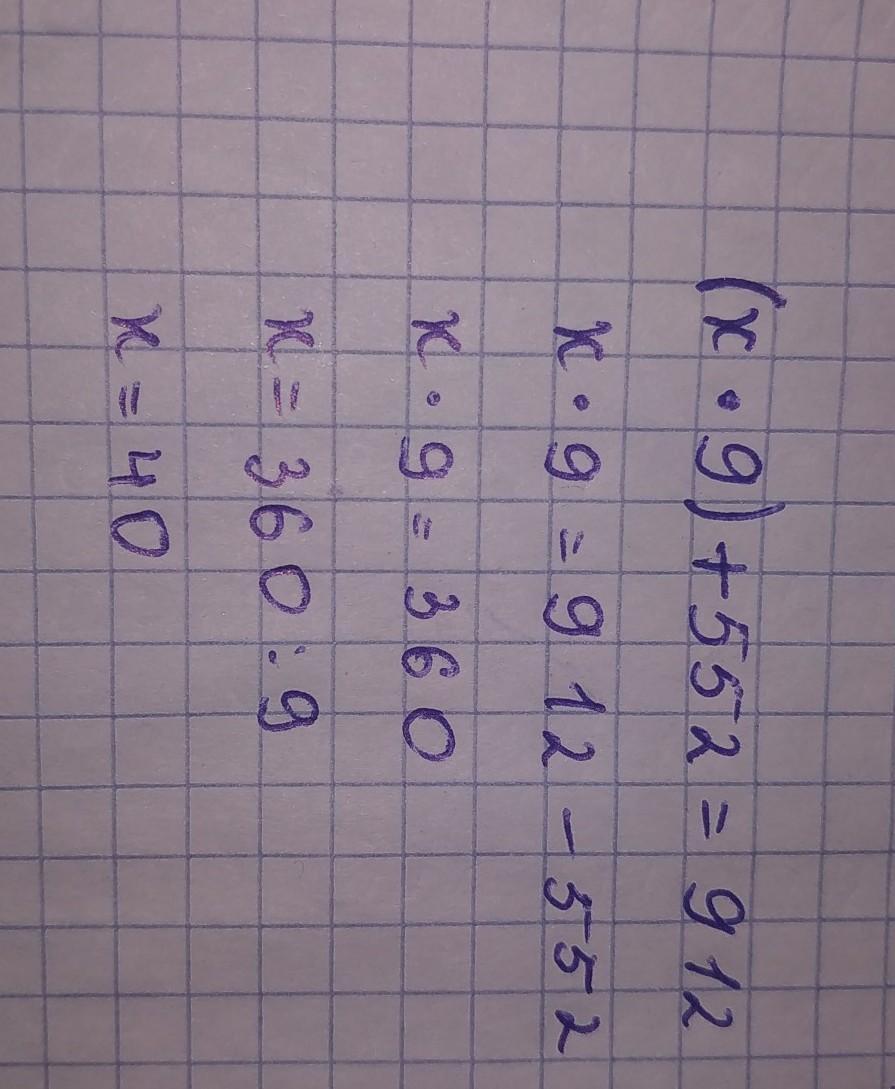 (x · 9) + 552 = 912
x · 9 = 912 - 552
x · 9 = 360
x = 360 : 9
x = 40